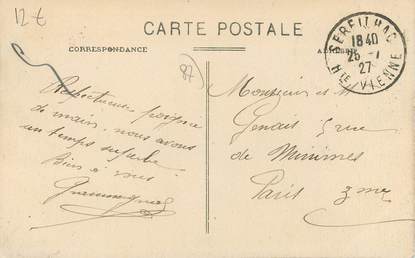 12€
CARTE POSTALE
CORRESPONDANCE
ADRESSE
87
PEREILHAC
18 40
25 - 1
27
Hte VIENNE
Respectueuse poignée
de main, nous avons
un temps superbe
Bien à vous
Monsieur et M
3 rue
de Minimes
Paris 3me